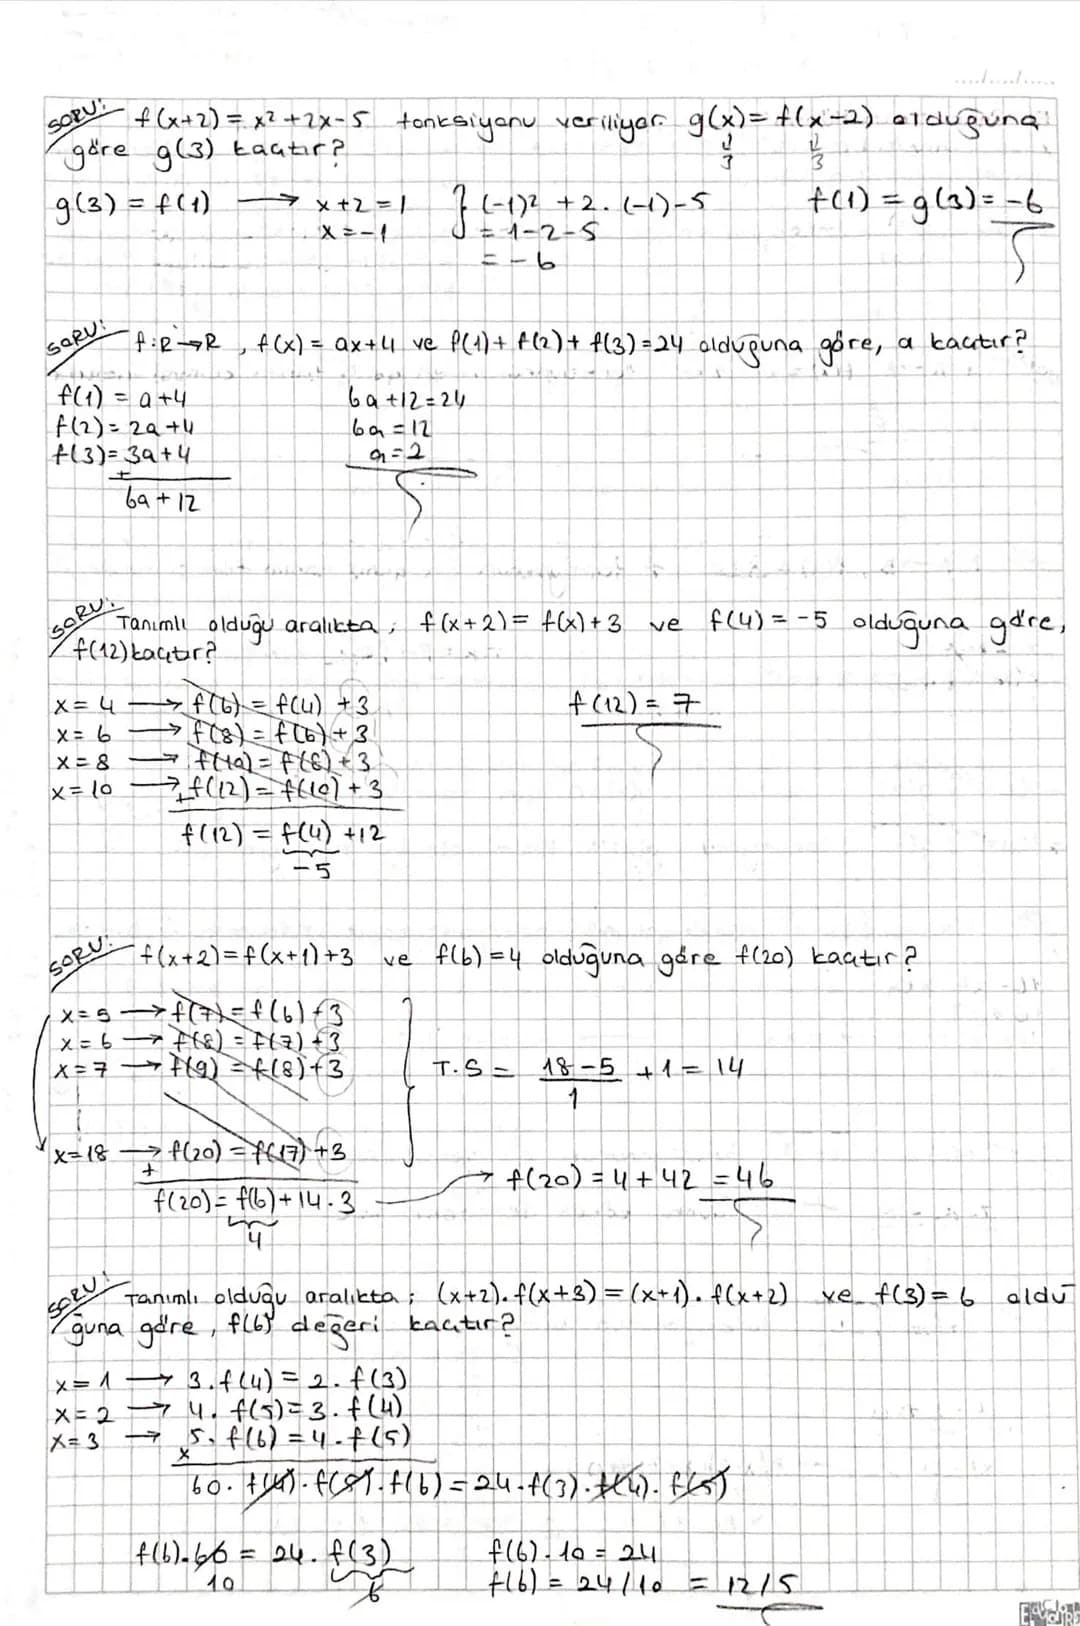 ...../...../.....
SORU: f(x+2) = x² + 2x - 5 fonksiyonu veriliyor. g(x) = f(x-2) olduğuna
↓ 3 ↓ 3
göre g(3) kaçtır?
g(3) = f(1) → x+2 = 1 } (-1)² + 2.(-1) - 5 f(1) = g(3) = -6
x = -1 = 1-2-5
= -6
SORU: f:R→R, f(x) = ax+4 ve f(1) + f(2) + f(3) = 24 olduğuna göre, a kaçtır?
f(1) = a+4 6a+12=24
f(2) = 2a+4 6a = 12
f(3) = 3a+4 a = 2
+
6a + 12
SORU: Tanımlı olduğu aralıkta; f(x+2) = f(x)+3 ve f(4) = -5 olduğuna göre,
f(12) kaçtır?
x = 4 → f(6) = f(4) + 3 f(12) = 7
x = 6 → f(8) = f(6) + 3
x = 8 → f(10) = f(8) + 3
x = 10 → + f(12) = f(10) + 3
f(12) = f(4) + 12
-5
SORU: f(x+2) = f(x+1)+3 ve f(6) = 4 olduğuna göre f(20) kaçtır?
x = 5 → f(7) = f(6) + 3
x = 6 → f(8) = f(7) + 3
x = 7 → f(9) = f(8) + 3 } T.S = 18-5/1 + 1 = 14
x = 18 → f(20) = f(17) + 3
+
f(20) = f(6) + 14.3 → f(20) = 4 + 42 = 46
4
SORU: Tanımlı olduğu aralıkta; (x+2).f(x+3) = (x+1).f(x+2) ve f(3) = 6 oldu
ğuna göre, f(6) değeri kaçtır?
x = 1 → 3.f(4) = 2.f(3)
x = 2 → 4.f(5) = 3.f(4)
x = 3 → 5.f(6) = 4.f(5)
x
60.f(4).f(5).f(6) = 24.f(3).f(4).f(5)
f(6).60 = 24.f(3) f(6).10 = 24
10 6 f(6) = 24/10 = 12/5